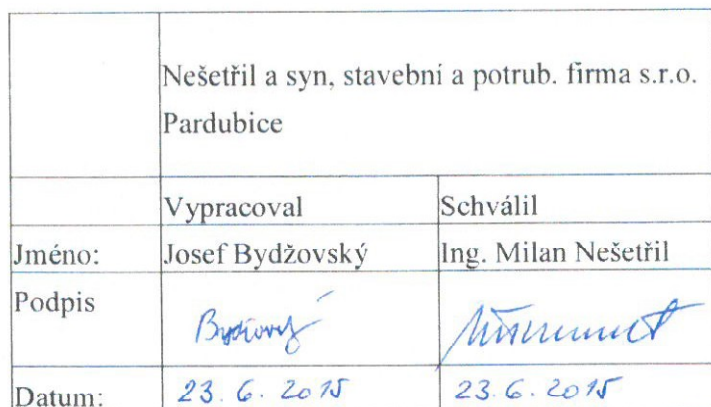 Nešetřil a syn, stavební a potrub. firma s.r.o.
Pardubice
Vypracoval Schválil
Jméno: Josef Bydžovský Ing. Milan Nešetřil
Podpis
Datum: 23. 6. 2015 23. 6. 2015